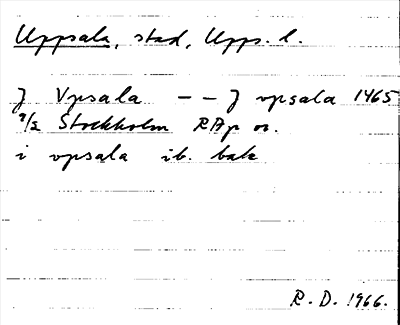 Uppsala, stad, Upps. l.
J Vpsala — — J vpsala 1465
9/2 Stockholm RAp or.
i vpsala ib. bak
R. D. 1966.